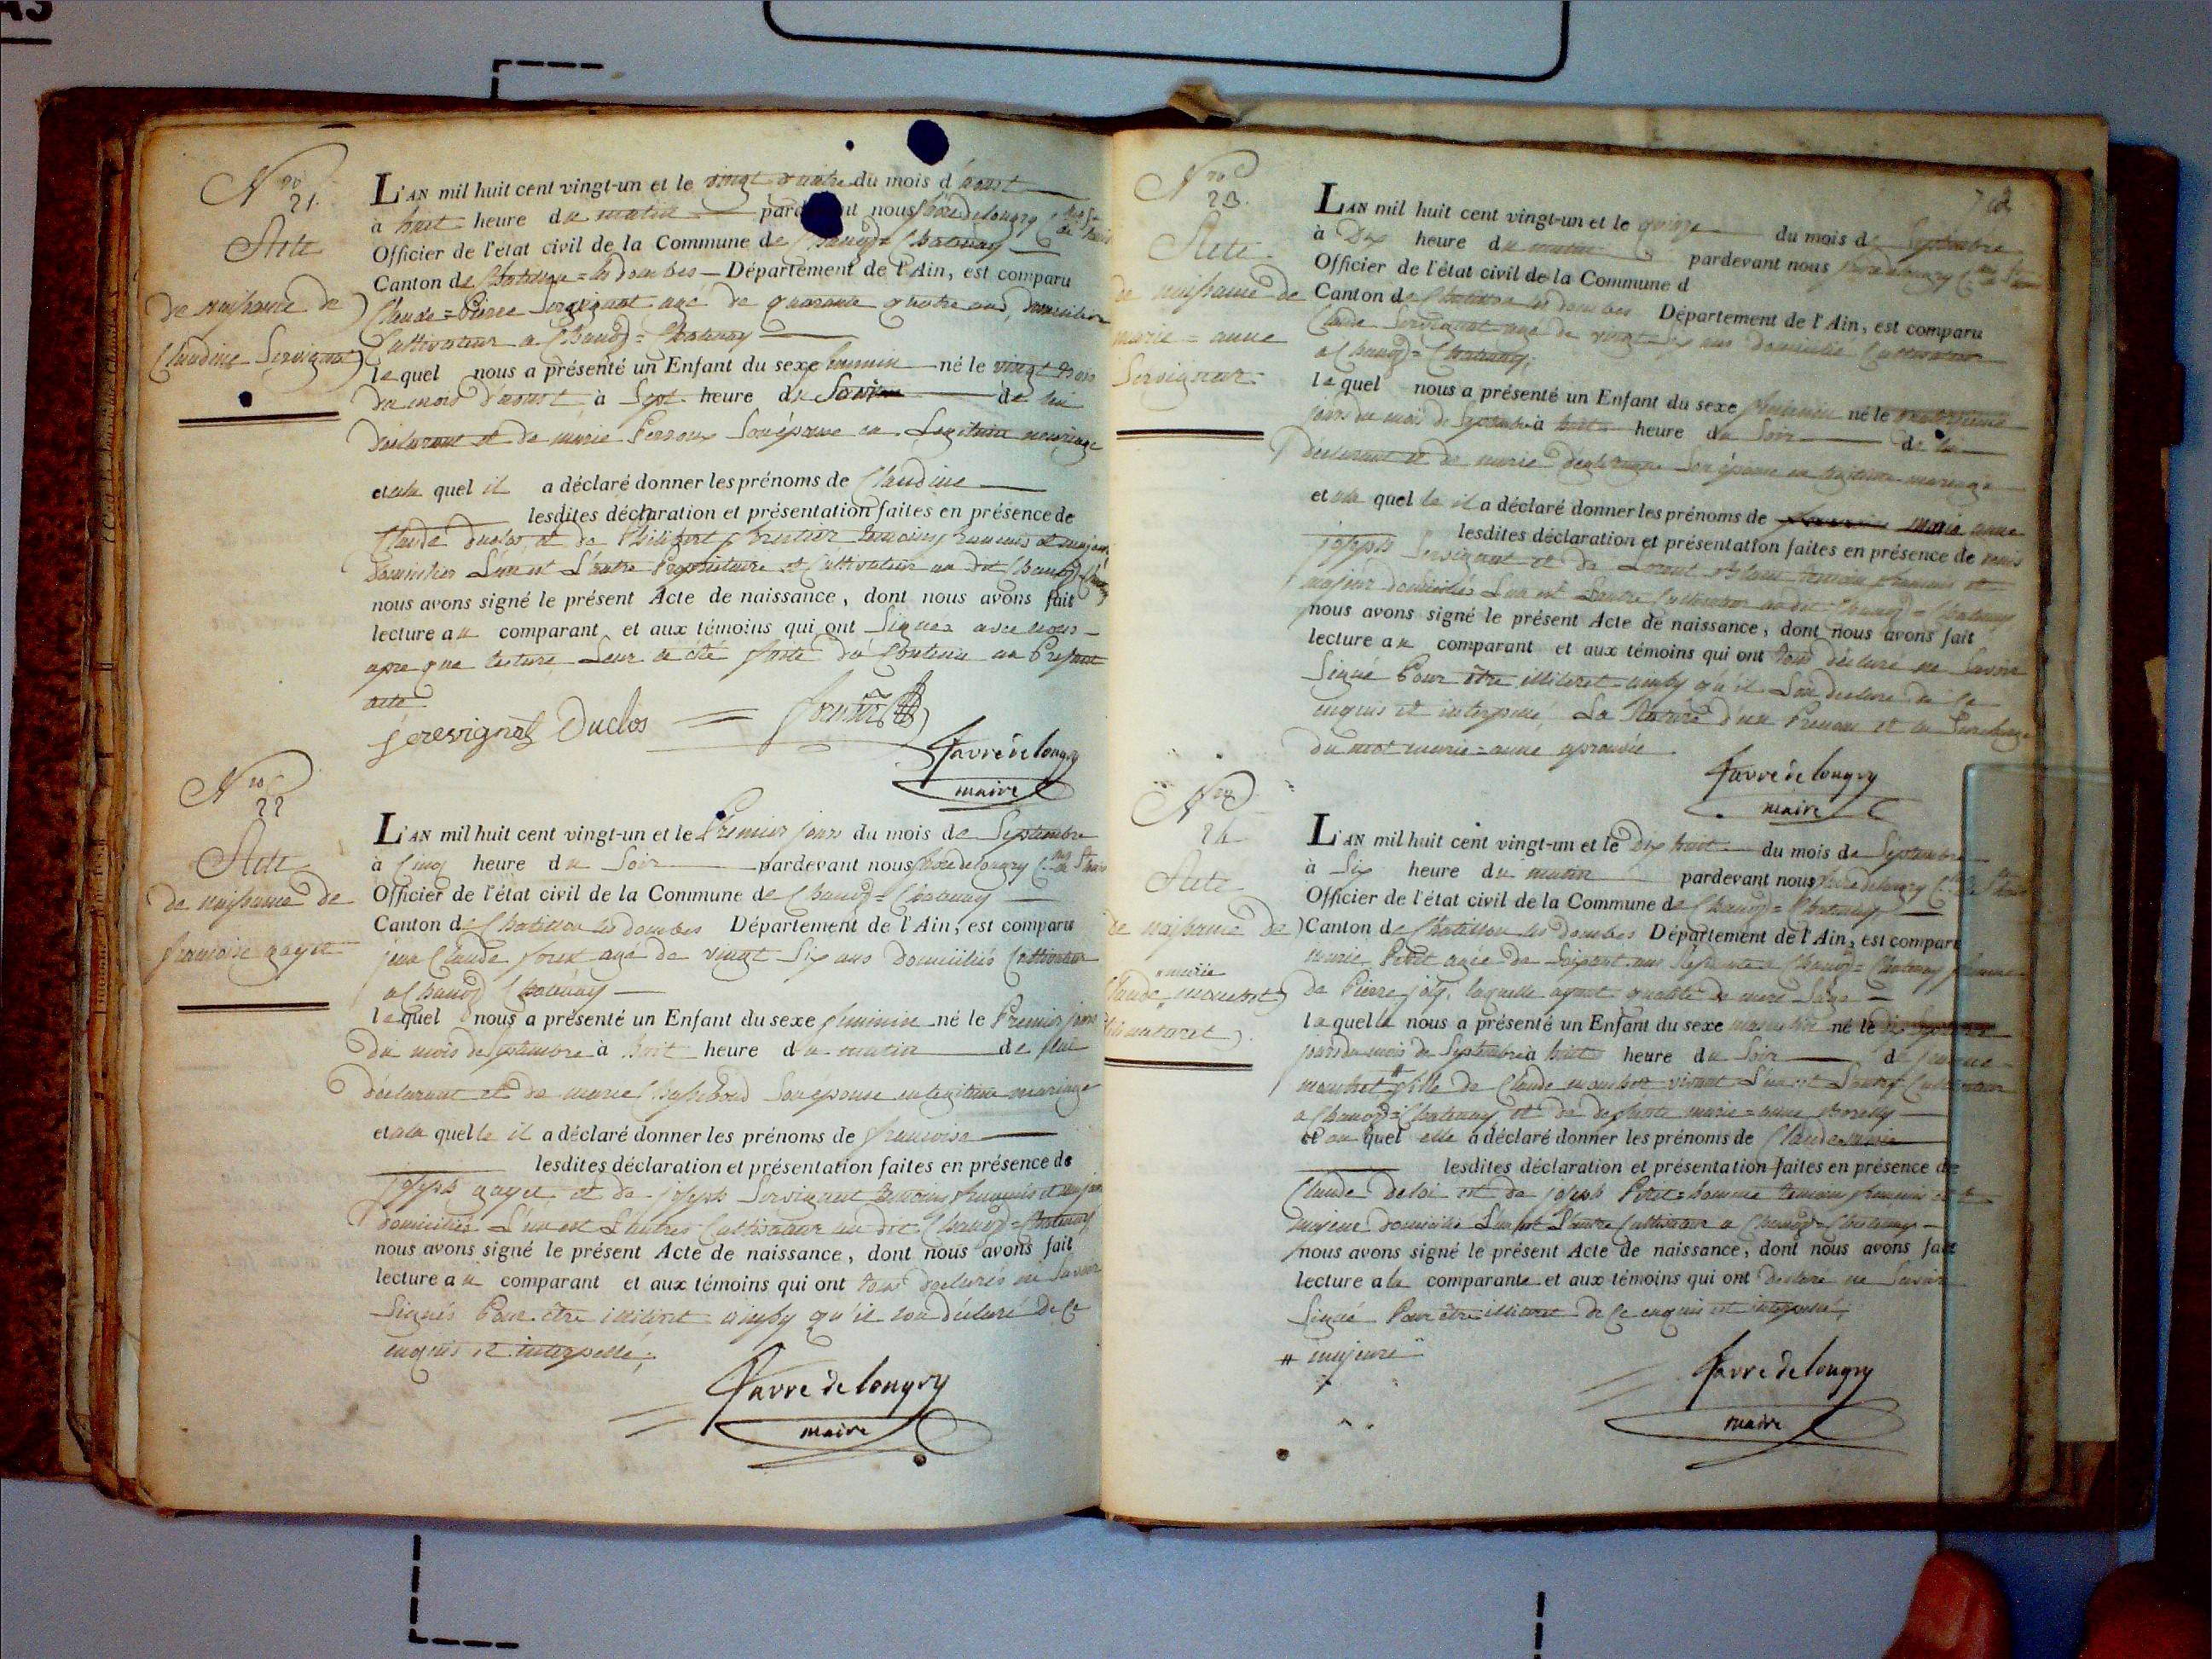 AS
Nro
21.
Acte
de naissance de
Claudine Servignat
L'AN mil huit cent vingt-un et le vingt quatre du mois d'aoust
à huit heure du matin pardevant nous favre de longry
Officier de l'état civil de la Commune de Chanoz = Chatenay
Canton de Chatillon = les dombes — Département de l'Ain, est comparu
Claude = Pierre Servignat agé de quarante quatre ans, domicilier
Cultivateur a Chanoz = Chatenay
lequel nous a présenté un Enfant du sexe feminin né le vingt trois
du mois d'aoust à Sept heure du Soir de lui
déclarant et de marie Perroux Son épouse en Legitime mariage
et a la quel il a déclaré donner les prénoms de Claudine
lesdites déclaration et présentation faites en présence de
Claude duclos et de Philibert temoins francais et majeur
domicilier L'un et L'autre Proprietaire et Cultivateur au dit Chanoz
nous avons signé le présent Acte de naissance, dont nous avons fait
lecture au comparant et aux témoins qui ont Signer avec nous
apre que lecture Leur a été faite du Contenu au Present
acte
serevignat Duclos
favre de longry
maire
Nro
22
Acte
de naissance de
francoise gayet
L'AN mil huit cent vingt-un et le Premier jours du mois de Septembre
à Cinq heure du Soir pardevant nous favre de longry
Officier de l'état civil de la Commune de Chanoz = Chatenay
Canton de Chatillon les dombes Département de l'Ain, est comparu
jean Claude agé de vingt Six ans domiciliés Cultivateur
a Chanoz Chatenay
lequel nous a présenté un Enfant du sexe feminin né le Premier jours
du mois de Septembre à huit heure du matin de lui
déclarant et de marie Son epouse en legitime mariage
et a la quelle il a déclaré donner les prénoms de francoise
lesdites déclaration et présentation faites en présence de
joseph gayet et de joseph Servignat temoins francais et majeur
domiciliés L'un et L'autres Cultivateur au dit Chanoz = Chatenay
nous avons signé le présent Acte de naissance, dont nous avons fait
lecture au comparant et aux témoins qui ont tous declarés ne Savoir
Signés Pour être illiteret ainsy qu'il l'on déclaré de Ce
enquis et interpellé;
favre de longry
maire
Nro
23.
Acte
de naissance de
marie = anne
Servignat
L'AN mil huit cent vingt-un et le quinze du mois de Septembre
à Dix heure du matin pardevant nous favre de longry
Officier de l'état civil de la Commune d
Canton de Chatillon les dombes Département de l'Ain, est comparu
Claude Servignat agé de vingt ans domicilié Cultivateur
a Chanoz = Chatenay;
lequel nous a présenté un Enfant du sexe feminin né le quatorzieme
jours du mois de Septembre à huit heure du Soir de lui
déclarant et de marie Son épouse en legitime mariage
et a la quelle il a déclaré donner les prénoms de marie anne
lesdites déclaration et présentation faites en présence de
joseph Servignat et de temoin francais et
majeur domiciliés L'un et L'autre Cultivateur au dit Chanoz = Chatenay
nous avons signé le présent Acte de naissance, dont nous avons fait
lecture au comparant et aux témoins qui ont tous déclaré ne Savoir
Signé Pour être illiteret ainsy qu'il L'on declaré de Ce
enquis et interpellé, La Rature d'un Prenom et la Surcharge
du mot marie = anne aprouvée
favre de longry
maire
Nro
24
Acte
de naissance de
marie
Claude
naturel
L'AN mil huit cent vingt-un et le Dix huit du mois de Septembre
à Six heure du matin pardevant nous favre de longry
Officier de l'état civil de la Commune de Chanoz = Chatenay
Canton de Chatillon les dombes Département de l'Ain, est comparu
marie Petit agée de Soixant ans Residente a Chanoz = Chatenay femme
de Pierre joly, laquelle ayant qualité de mere Sage
laquelle nous a présenté un Enfant du sexe masculin né le
jours du mois de Septembre à huit heure du Soir de
fille de Claude vivant L'un et L'autre Cultivateur
a Chanoz = Chatenay et de deffunte marie = anne
et au quel elle a déclaré donner les prénoms de Claude marie
lesdites déclaration et présentation faites en présence de
Claude deloi et de joseph Petit = homme temoins francais et
majeur domicilié L'un et L'autre Cultivateur a Chanoz = Chatenay
nous avons signé le présent Acte de naissance, dont nous avons fait
lecture a la comparante et aux témoins qui ont declaré ne Savoir
Signé Pour être illiteret de Ce enquis et interpellé;
# majeure
favre de longry
maire